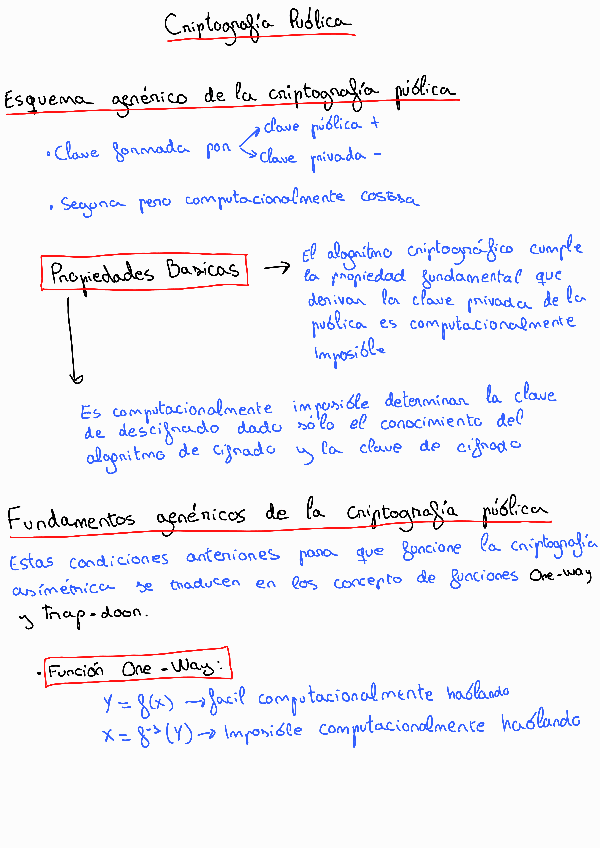 Criptografía Pública
Esquema genérico de la criptografía pública
• Clave formada por
clave pública +
clave privada -
• Segura pero computacionalmente costosa
Propiedades Basicas →
El algoritmo criptográfico cumple
la propiedad fundamental que
derivar la clave privada de la
pública es computacionalmente
imposible
Es computacionalmente imposible determinar la clave
de descifrado dado sólo el conocimiento del
algoritmo de cifrado y la clave de cifrado
Fundamentos genéricos de la criptografía pública
Estas condiciones anteriores para que funcione la criptografía
asimétrica se traducen en los concepto de funciones One-way
y trap-door.
• Función One-Way:
Y = f(x) → facil computacionalmente hablando
X = f⁻¹(Y) → Imposible computacionalmente hablando